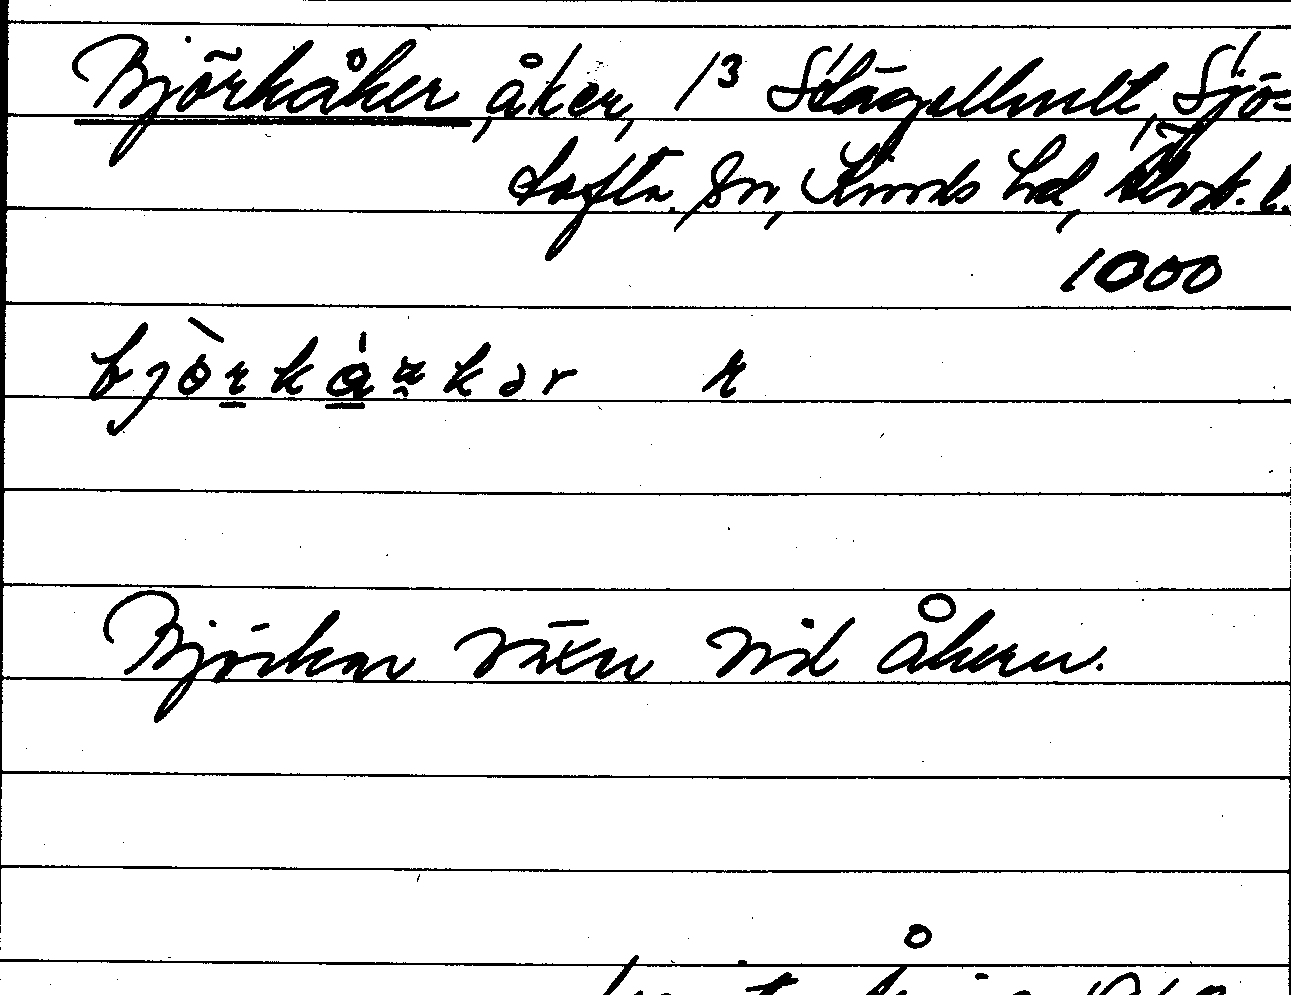 Björkåker, åker, 1³ Slägelhult, Sjös
tofta sn, Kinds hd, Älvsb. l.
1000
björkåkər r
Björkar växer vid åkern.